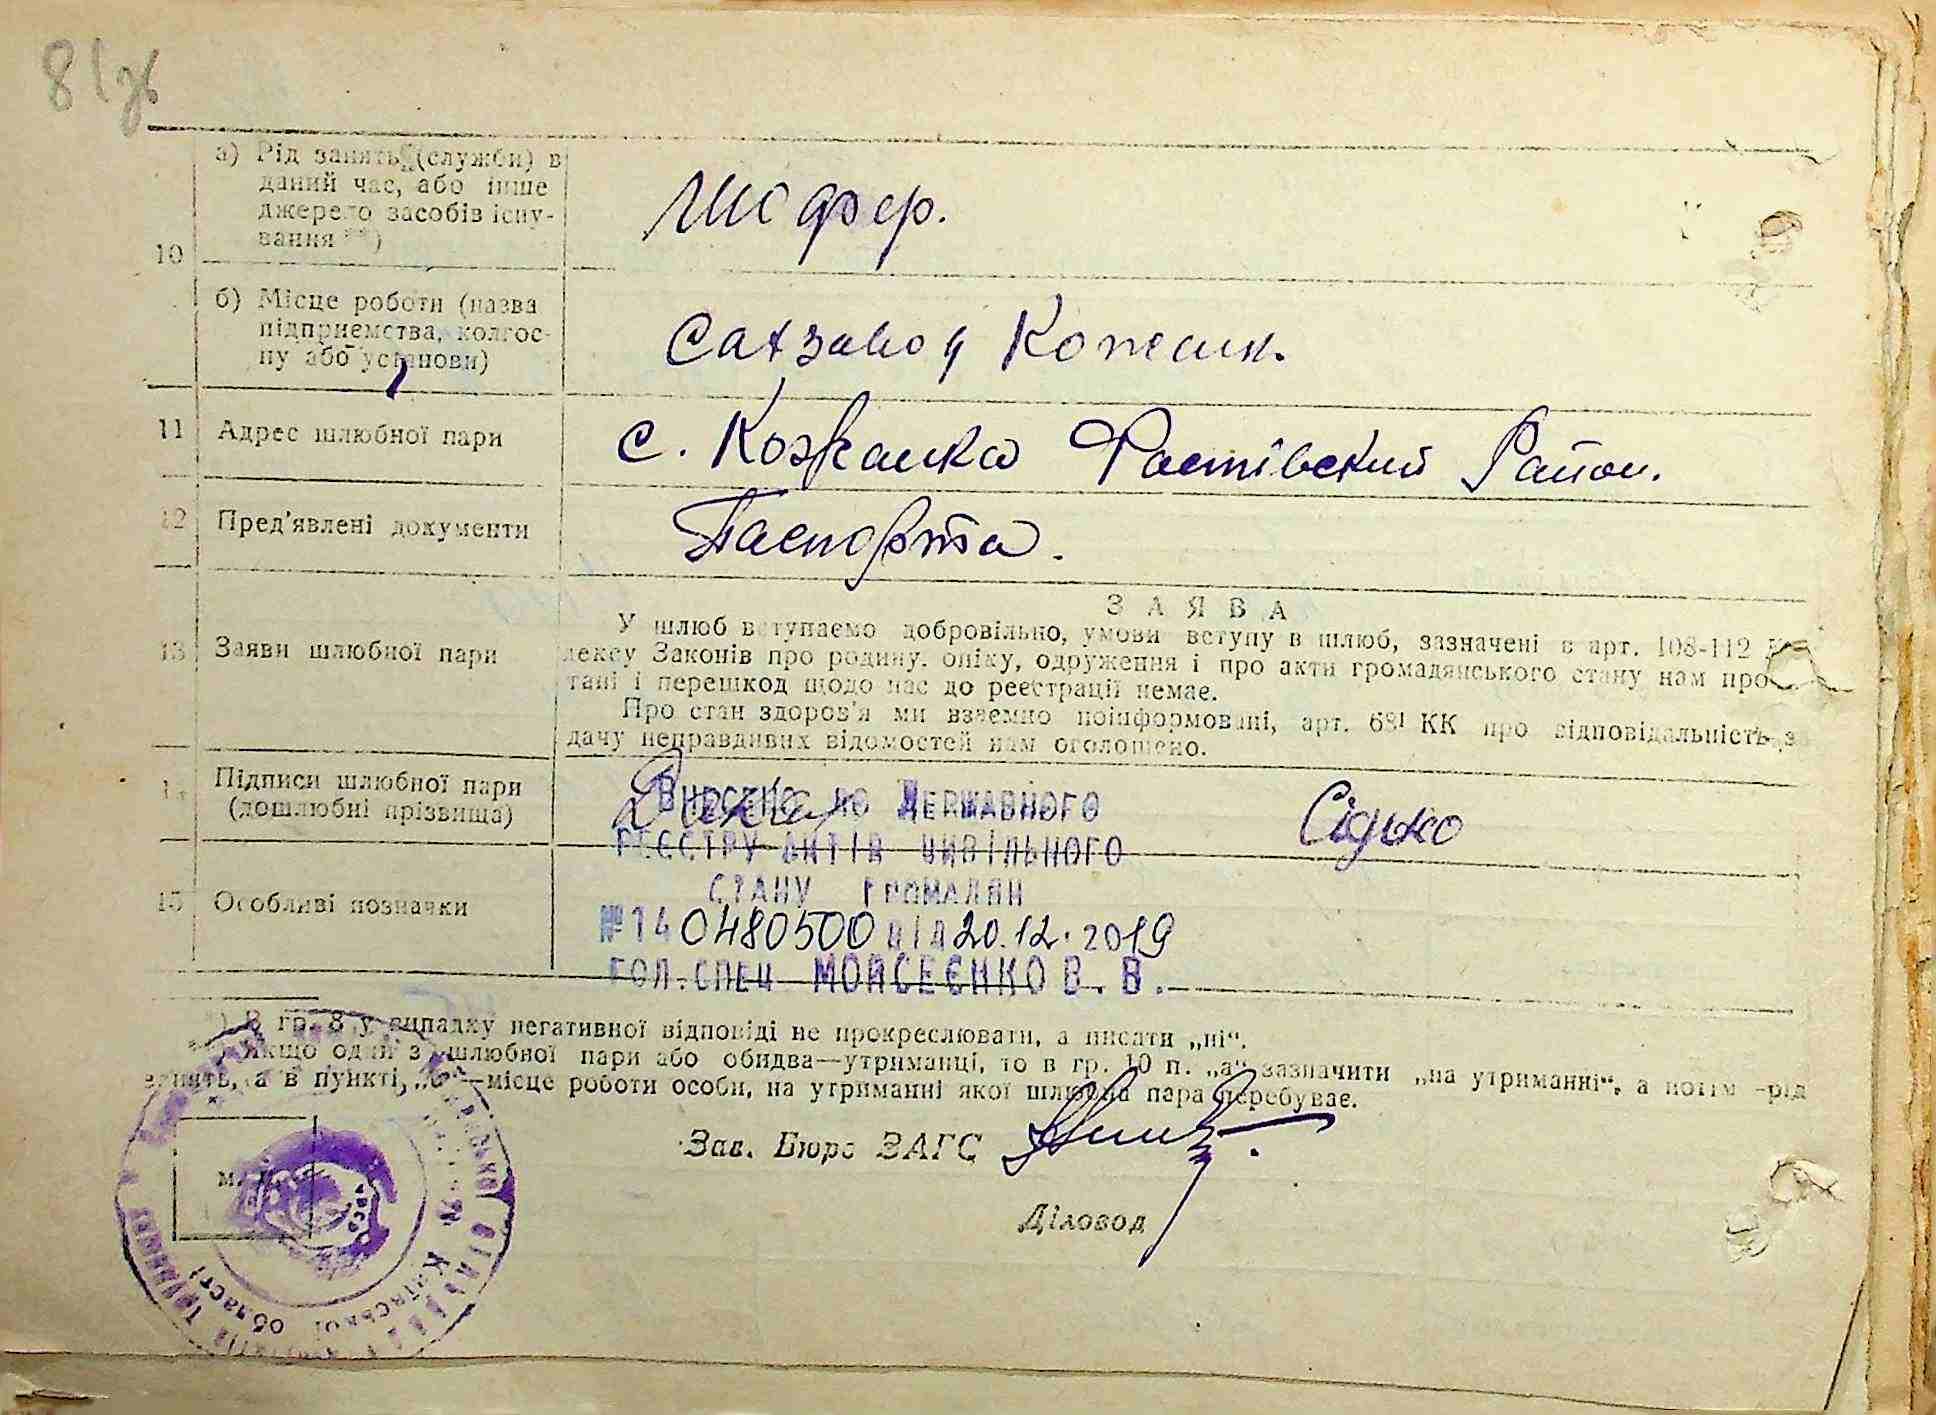 81зв
а) Рід занять (служби) в
даний час, або інше
джерело засобів існу-
вання **)
Шофер.
10
б) Місце роботи (назва
підприємства, колгос-
пу або установи)
Сахзавод Кожанк.
11 Адрес шлюбної пари
с. Кожанка Фастівский Район.
12 Пред'явлені документи
Паспорта.
13 Заяви шлюбної пари
ЗАЯВА
У шлюб вступаємо добровільно, умови вступу в шлюб, зазначені в арт. 108-112 К
дексу Законів про родину. опіку, одруження і про акти громадянського стану нам про
тані і перешкод щодо нас до реєстрації немає.
Про стан здоров'я ми взаємно поінформовані, арт. 68¹ КК про відповідальність за
дачу неправдивих відомостей нам оголошено.
14 Підписи шлюбної пари
(дошлюбні прізвища)
Сідько
Внесено до Державного
реєстру актів цивільного
стану громадян
15 Особливі позначки
№ 140480500 від 20.12.2019
гол.спец Мойсеєнко В.В.
*) В гр. 8 у випадку негативної відповіді не прокреслювати, а писати „ні“.
Якщо один з шлюбної пари або обидва—утриманці, то в гр. 10 п. „а“ зазначити „на утриманні“, а потім -рід
занять, а в пункті —місце роботи особи, на утриманні якої шлюбна пара перебуває.
Зав. Бюро ЗАГС
Діловод
М. П.
УРСР
Київської області